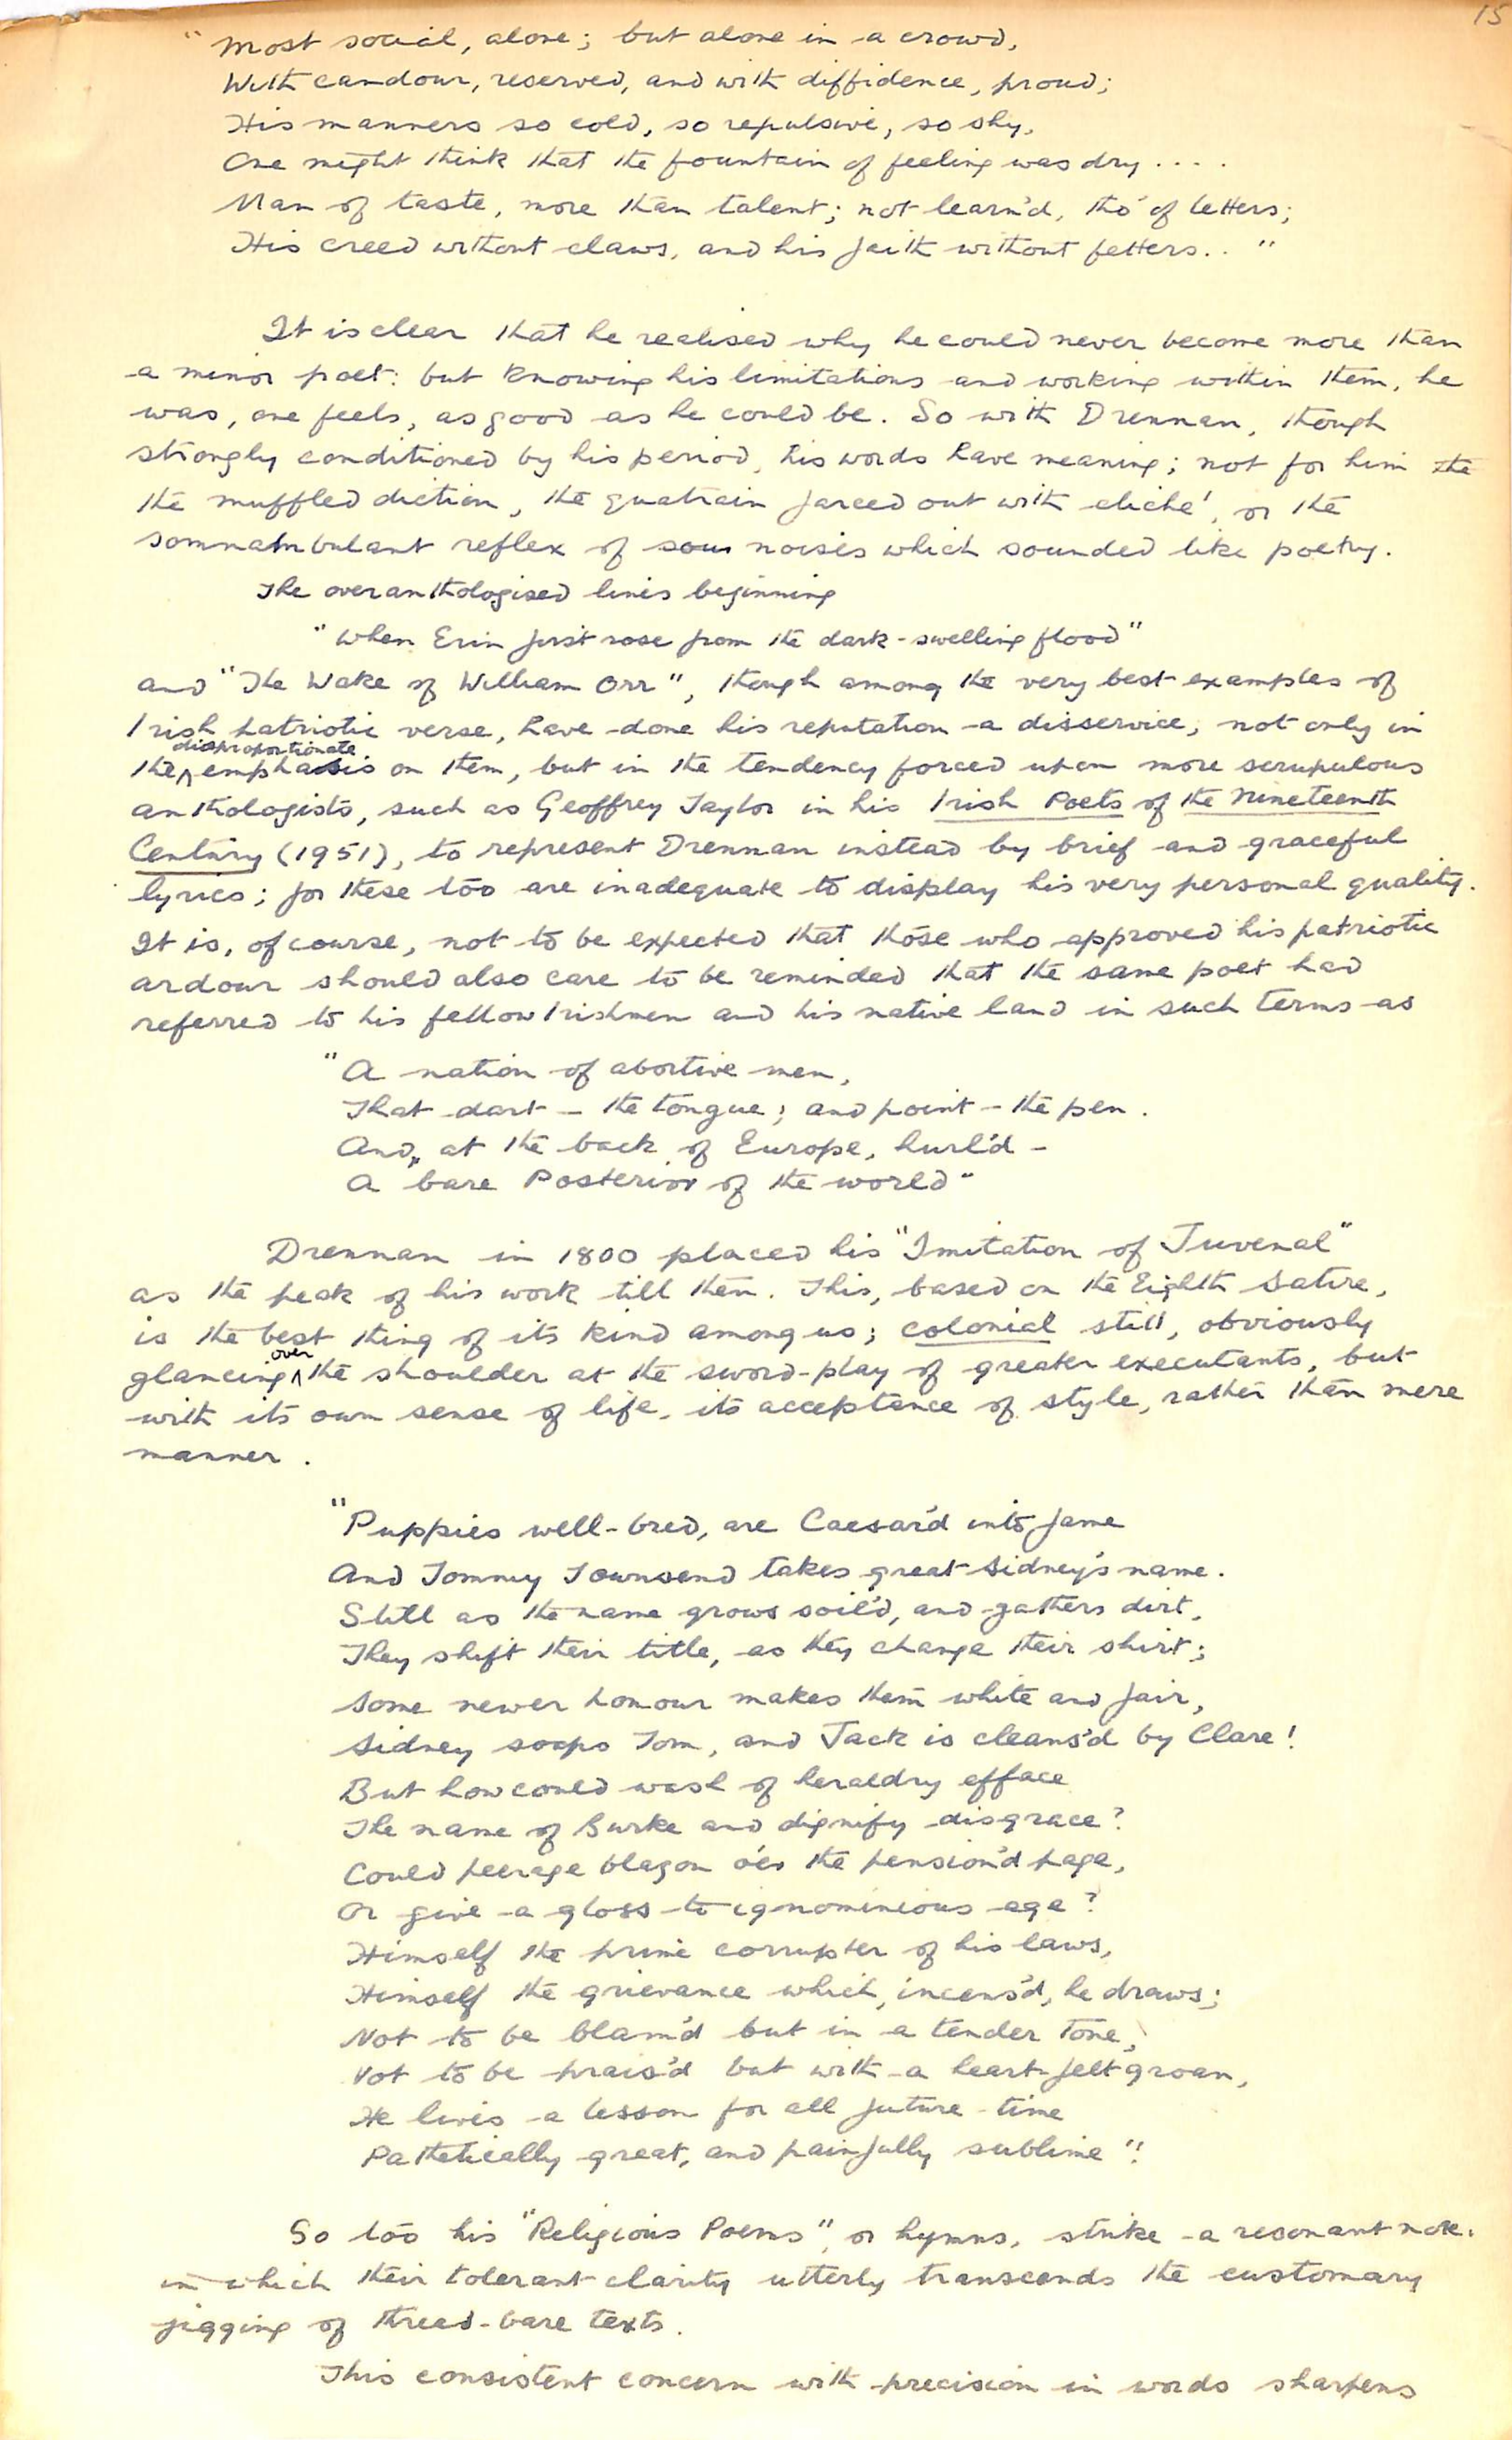 15
"Most social, alone; but alone in a crowd,
With candour, reserved, and with diffidence, proud;
His manners so cold, so repulsive, so shy,
One might think that the fountain of feeling was dry....
Man of taste, more than talent; not learn'd, tho' of letters;
His creed without claws, and his faith without fetters.. "
It is clear that he realised why he could never become more than
a minor poet: but knowing his limitations and working within them, he
was, one feels, as good as he could be. So with Drennan, though
strongly conditioned by his period, his words have meaning; not for him the
the muffled diction, the quatrain farced out with cliché, or the
somnambulant reflex of sour noises which sounded like poetry.
The overanthologised lines beginning
"When Erin first rose from the dark-swelling flood"
and "The Wake of William Orr", though among the very best examples of
Irish patriotic verse, have done his reputation a disservice, not only in
the disproportionate emphasis on them, but in the tendency forced upon more scrupulous
anthologists, such as Geoffrey Taylor in his Irish Poets of the Nineteenth
Century (1951), to represent Drennan instead by brief and graceful
lyrics; for these too are inadequate to display his very personal quality.
It is, of course, not to be expected that those who approved his patriotic
ardour should also care to be reminded that the same poet had
referred to his fellow Irishmen and his native land in such terms as
"A nation of abortive men,
That dart - the tongue; and point - the pen.
And, at the back of Europe, hurl'd -
A "bare Posterior of the world"
Drennan in 1800 placed his "Imitation of Juvenal"
as the peak of his work till then. This, based on the Eighth Satire,
is the best thing of its kind among us; colonial still, obviously
glancing over the shoulder at the sword-play of greater executants, but
with its own sense of life, its acceptance of style, rather than mere
manner.
"Puppies well-bred, are Caesar'd into fame
And Tommy Townsend takes great Sidney's name.
Still as the name grows soil'd, and gathers dirt,
They shift their title, as they change their shirt;
Some newer honour makes them white and fair,
Sidney soaps Tom, and Jack is cleans'd by Clare!
But how could wash of heraldry efface
The name of Burke and dignify disgrace?
Could peerage blazon o'er the pension'd page,
Or give a gloss to ignominious age?
Himself the prime corrupter of his laws,
Himself the grievance which, incens'd, he draws;
Not to be blam'd but in a tender tone,
Not to be prais'd but with a heart-felt groan,
He lives a lesson for all future time
Pathetically great, and painfully sublime"!
So too his "Religious Poems", or hymns, strike a resonant note,
in which their tolerant clarity utterly transcends the customary
jigging of thread-bare texts.
This consistent concern with precision in words sharpens